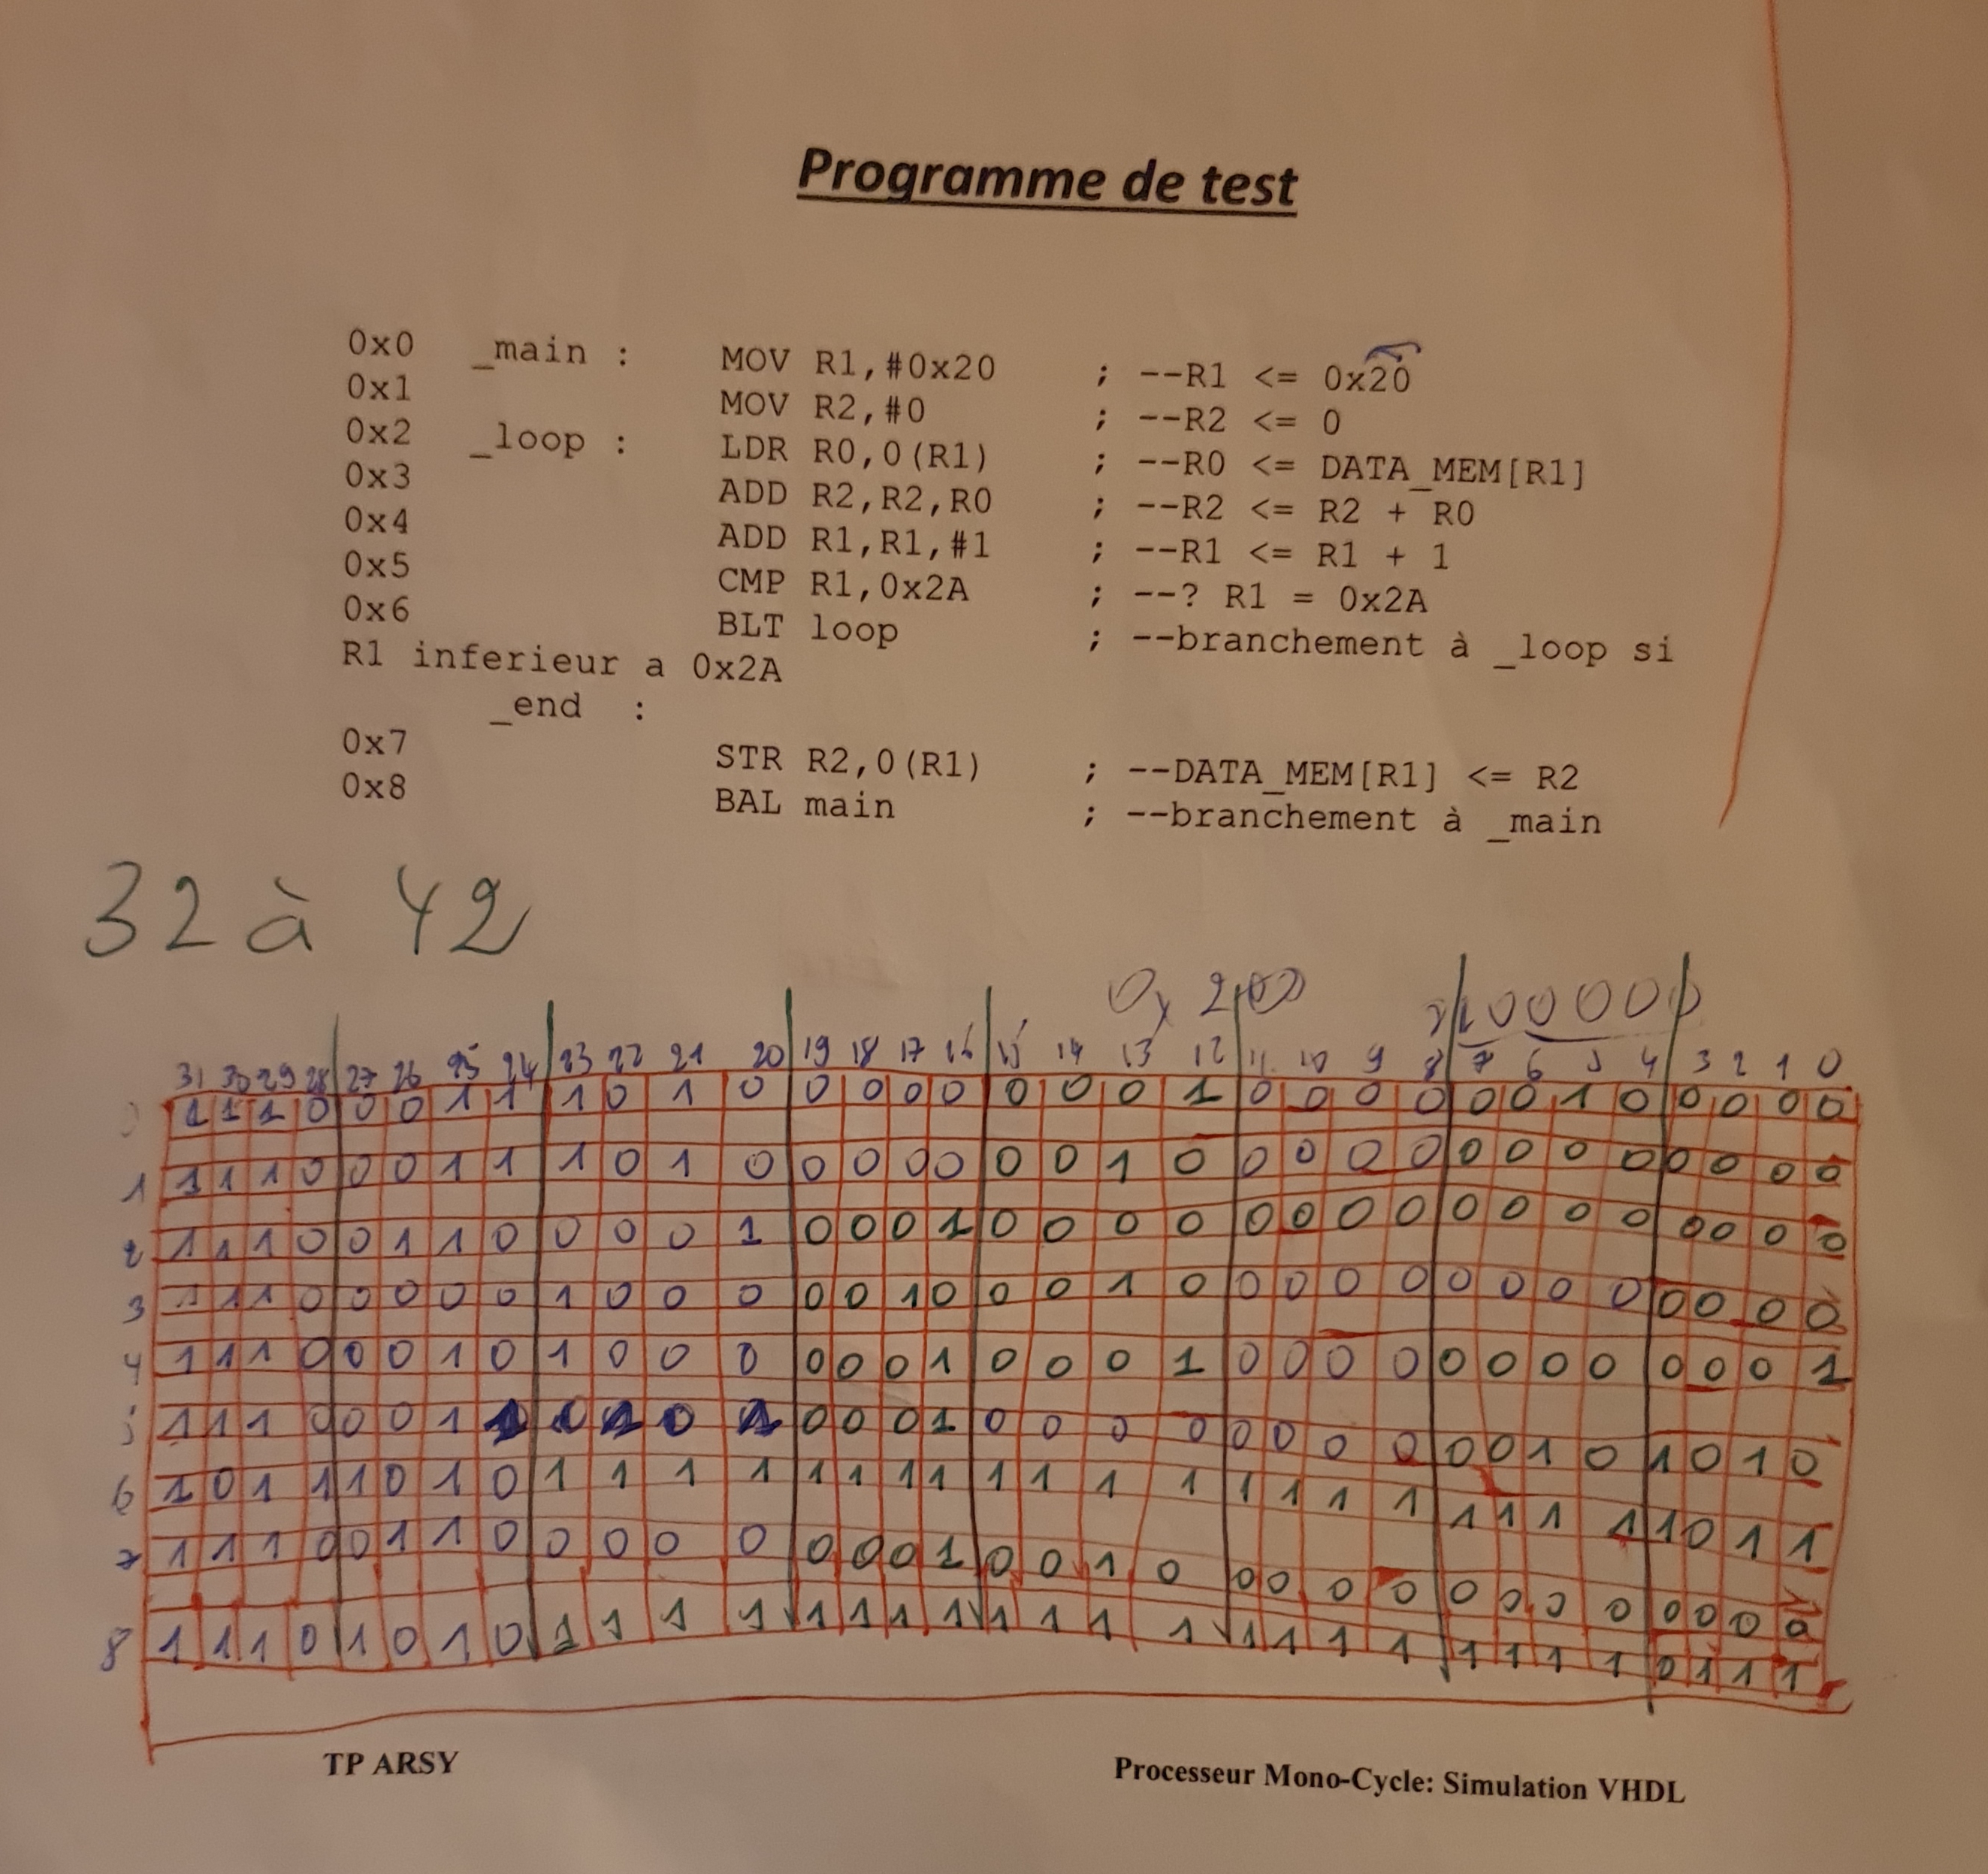 Programme de test
0x0 _main : MOV R1,#0x20 ; --R1 <= 0x20
0x1 MOV R2,#0 ; --R2 <= 0
0x2 _loop : LDR R0,0(R1) ; --R0 <= DATA_MEM[R1]
0x3 ADD R2,R2,R0 ; --R2 <= R2 + R0
0x4 ADD R1,R1,#1 ; --R1 <= R1 + 1
0x5 CMP R1,0x2A ; --? R1 = 0x2A
0x6 BLT loop ; --branchement à _loop si
R1 inferieur a 0x2A
_end :
0x7 STR R2,0(R1) ; --DATA_MEM[R1] <= R2
0x8 BAL main ; --branchement à _main
32 à 42
31 30 29 28 27 26 25 24 23 22 21 20 19 18 17 16 15 14 13 12 11 10 9 8 7 6 5 4 3 2 1 0
0 1 1 1 0 0 0 1 1 1 0 1 0 0 0 0 0 0 0 0 1 0 0 0 0 0 0 1 0 0 0 0 0
1 1 1 1 0 0 0 1 1 1 0 1 0 0 0 0 0 0 0 1 0 0 0 0 0 0 0 0 0 0 0 0 0
2 1 1 1 0 0 1 1 0 0 0 0 1 0 0 0 1 0 0 0 0 0 0 0 0 0 0 0 0 0 0 0 0
3 1 1 1 0 0 0 0 0 1 0 0 0 0 0 1 0 0 0 1 0 0 0 0 0 0 0 0 0 0 0 0 0
4 1 1 1 0 0 0 1 0 1 0 0 0 0 0 0 1 0 0 0 1 0 0 0 0 0 0 0 0 0 0 0 1
5 1 1 1 0 0 0 1 1 0 1 0 1 0 0 0 1 0 0 0 0 0 0 0 0 0 0 1 0 1 0 1 0
6 1 0 1 1 1 0 1 0 1 1 1 1 1 1 1 1 1 1 1 1 1 1 1 1 1 1 1 1 1 0 1 1
7 1 1 1 0 0 1 1 0 0 0 0 0 0 0 0 1 0 0 1 0 0 0 0 0 0 0 0 0 0 0 0 0
8 1 1 1 0 1 0 1 0 1 1 1 1 1 1 1 1 1 1 1 1 1 1 1 1 1 1 1 1 0 1 1 1
TP ARSY
Processeur Mono-Cycle: Simulation VHDL